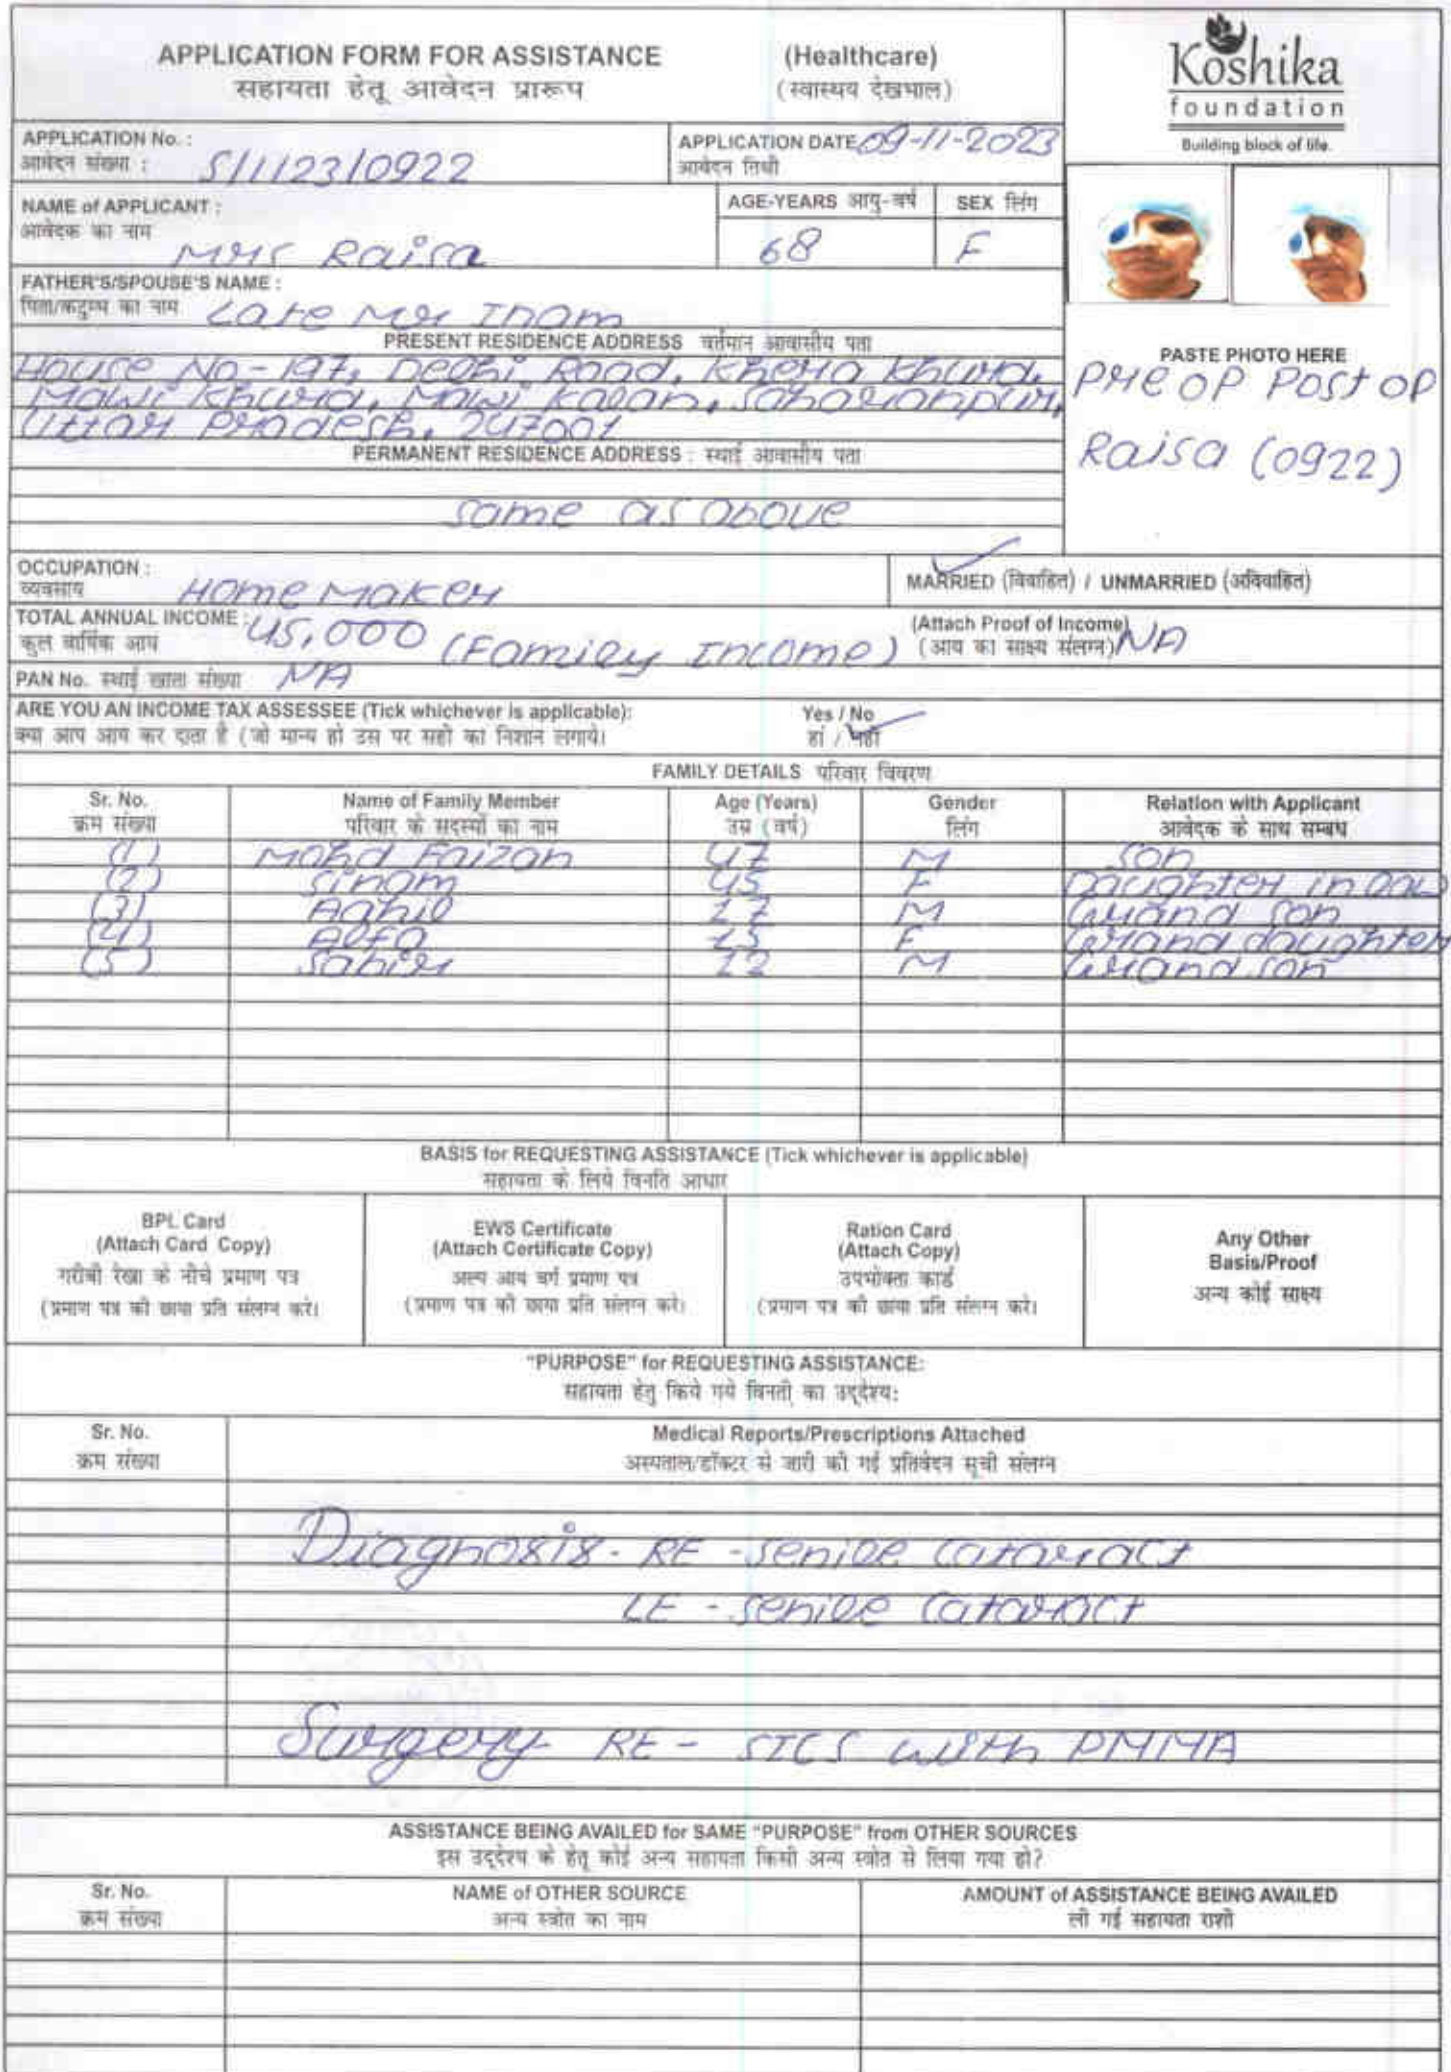 APPLICATION FORM FOR ASSISTANCE (Healthcare)
सहायता हेतू आवेदन प्रारूप (स्वास्थय देखभाल)
Koshika
foundation
Building block of life.
APPLICATION No. :
आवेदन संख्या : S/1123/0922
APPLICATION DATE 09-11-2023
आवेदन तिथी
NAME of APPLICANT :
आवेदक का नाम Mrs Raisa
AGE-YEARS आयु-वर्ष
68
SEX लिंग
F
FATHER'S/SPOUSE'S NAME :
पिता/कटुम्ब का नाम Late Mr Inam
PRESENT RESIDENCE ADDRESS वर्तमान आवासीय पता
House No-197, Delhi Road, Khera Khurd,
Mawi Khurd, Mawi Kalan, Saharanpur,
Uttar Pradesh, 247001
PERMANENT RESIDENCE ADDRESS : स्थाई आवासीय पता
Same as above
PASTE PHOTO HERE
Pre OP Post OP
Raisa (0922)
OCCUPATION :
व्यवसाय Home Maker
MARRIED (विवाहित) / UNMARRIED (अविवाहित)
TOTAL ANNUAL INCOME : 45,000 (Family Income)
कुल वार्षिक आय
(Attach Proof of Income) NA
(आय का साक्ष्य संलग्न)
PAN No. स्थाई खाता संख्या NA
ARE YOU AN INCOME TAX ASSESSEE (Tick whichever is applicable): Yes / No
क्या आप आय कर दाता है (जो मान्य हो उस पर सही का निशान लगाये। हां / नहीं
FAMILY DETAILS परिवार विवरण
Sr. No. Name of Family Member Age (Years) Gender Relation with Applicant
क्रम संख्या परिवार के सदस्यों का नाम उम्र (वर्ष) लिंग आवेदक के साथ सम्बध
(1) Mohd Faizan 47 M Son
(2) Sinam 45 F Daughter in law
(3) Aahil 17 M Grand son
(4) Alfa 15 F Grand daughter
(5) Sahir 12 M Grand son
BASIS for REQUESTING ASSISTANCE (Tick whichever is applicable)
सहायता के लिये विनति आधार
BPL Card
(Attach Card Copy)
गरीबी रेखा के नीचे प्रमाण पत्र
(प्रमाण पत्र की छाया प्रति संलग्न करे।
EWS Certificate
(Attach Certificate Copy)
अल्प आय वर्ग प्रमाण पत्र
(प्रमाण पत्र की छाया प्रति संलग्न करे।
Ration Card
(Attach Copy)
उपभोक्ता कार्ड
(प्रमाण पत्र की छाया प्रति संलग्न करे।
Any Other
Basis/Proof
अन्य कोई साक्ष्य
"PURPOSE" for REQUESTING ASSISTANCE:
सहायता हेतु किये गये विनती का उद्देश्य:
Sr. No. Medical Reports/Prescriptions Attached
क्रम संख्या अस्पताल/डॉक्टर से जारी की गई प्रतिवेदन सूची संलग्न
Diagnosis- RE - Senile Cataract
LE - Senile Cataract
Surgery- RE - SICS with PMMA
ASSISTANCE BEING AVAILED for SAME "PURPOSE" from OTHER SOURCES
इस उद्देश्य के हेतू कोई अन्य सहायता किसी अन्य स्त्रोत से लिया गया हो?
Sr. No. NAME of OTHER SOURCE AMOUNT of ASSISTANCE BEING AVAILED
क्रम संख्या अन्य स्त्रोत का नाम ली गई सहायता राशी